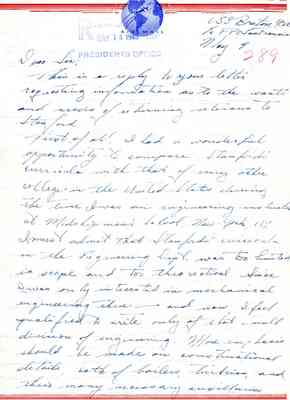 AIR MAIL
153 Breton
May 9
MAY 14 1945
289
PRESIDENTS OFFICE
Dear Sir:
This is a reply to your letter
requesting information as to the wants
and needs of returning veterans to
Stanford.
First of all I had a wonderful
opportunity to compare Stanford's
curricula with that of every other
college in the United States during
the time I was an engineering instructor
at Midshipmen's School New York
I must admit that Stanford's curricula
in the Engineering was too limited
in scope and too theoretical. Since
I was only interested in mechanical
engineering there — and now, I feel
qualified to write only of that small
division of engineering. More emphasis
should be made on constructional
details both of boilers, turbines, and
their many necessary auxiliaries